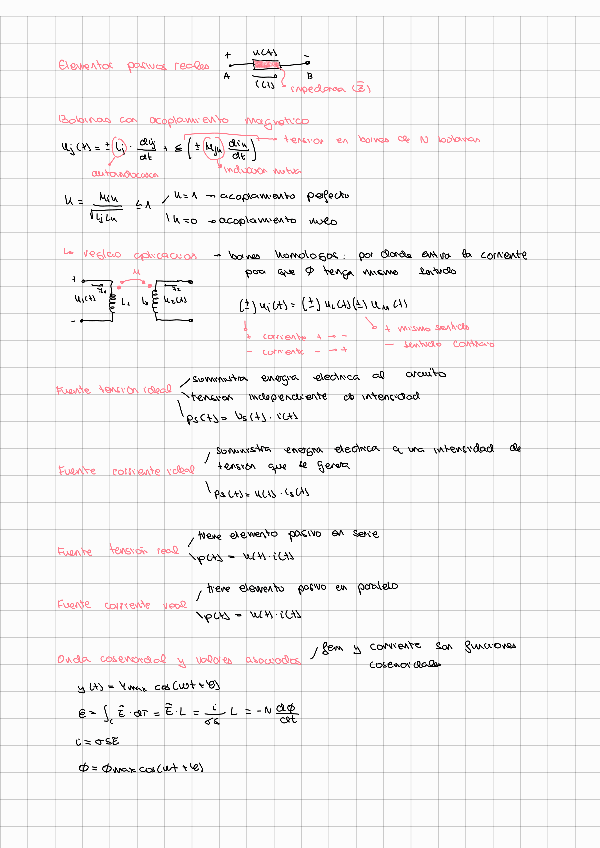 Elementos pasivos reales
+ u(t) -
A B
i(t)
impedancia (Z̄)
Bobinas con acoplamiento magnético
uj(t) = ± Lj · dij/dt + Σ (± Mjk dik/dt) → tensión en bornes de N bobinas
autoinductancia
inducción mutua
k = Mjk/√(Lj Lk) ≤ 1
k=1 → acoplamiento perfecto
k=0 → acoplamiento nulo
↳ reglas aplicación → bornes homólogos: por donde entra la corriente
para que ϕ tenga mismo sentido
M
u1(t) L1 L2 u2(t)
(±) uj(t) = (±) uL(t) (±) uM(t)
+ corriente + → -
- corriente - → +
+ mismo sentido
- sentido contrario
Fuente tensión ideal
suministra energía eléctrica al circuito
tensión independiente de intensidad
ps(t) = us(t) · i(t)
Fuente corriente ideal
suministra energía eléctrica a una intensidad de
tensión que se genera
ps(t) = u(t) · is(t)
Fuente tensión real
tiene elemento pasivo en serie
p(t) = u(t) · i(t)
Fuente corriente real
tiene elemento pasivo en paralelo
p(t) = u(t) · i(t)
Onda cosenoidal y valores asociados
fem y corriente son funciones
cosenoidales
y(t) = Ymax cos(ωt + φ)
ε = ∫c Ē · dr = Ē · L = i/σs L = -N dϕ/dt
i = σSE
ϕ = ϕmax cos(ωt + φ)